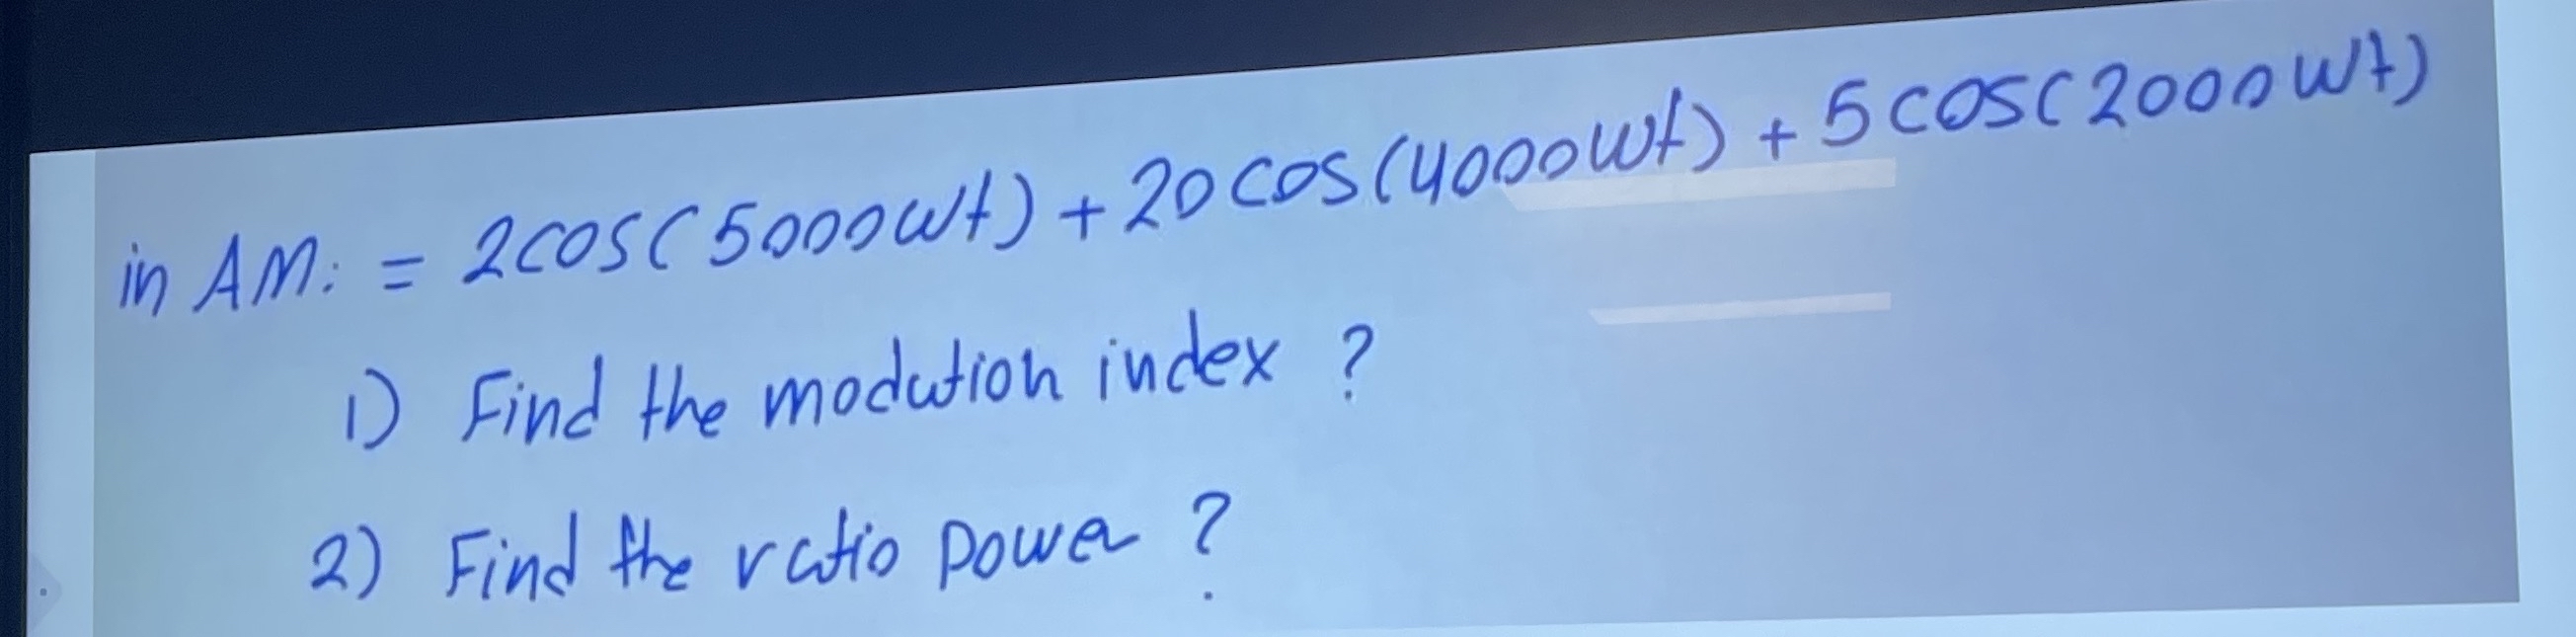 in AM: = 2cos(5000wt) + 20 cos(4000wt) + 5 cos(2000wt)
1) Find the modution index ?
2) Find the ratio power ?